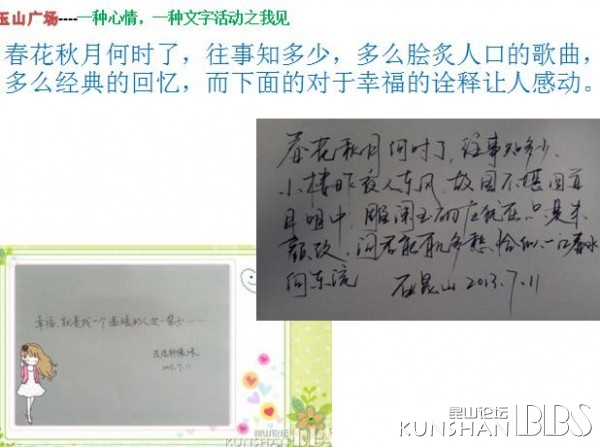 玉山广场----一种心情，一种文字活动之我见
春花秋月何时了，往事知多少，多么脍炙人口的歌曲，
多么经典的回忆，而下面的对于幸福的诠释让人感动。
春花秋月何时了，往事知多少、
小楼昨夜又东风，故国不堪回首
月明中，雕阑玉砌应犹在，只是朱
颜改，问君能有几多愁，恰似一江春水
向东流 昆山 2013.7.11
幸福，就是找一个温暖的人过一辈子……
2013.7.11
昆山论坛
KUNSHAN BBS
昆山论坛
KUNSHAN BBS